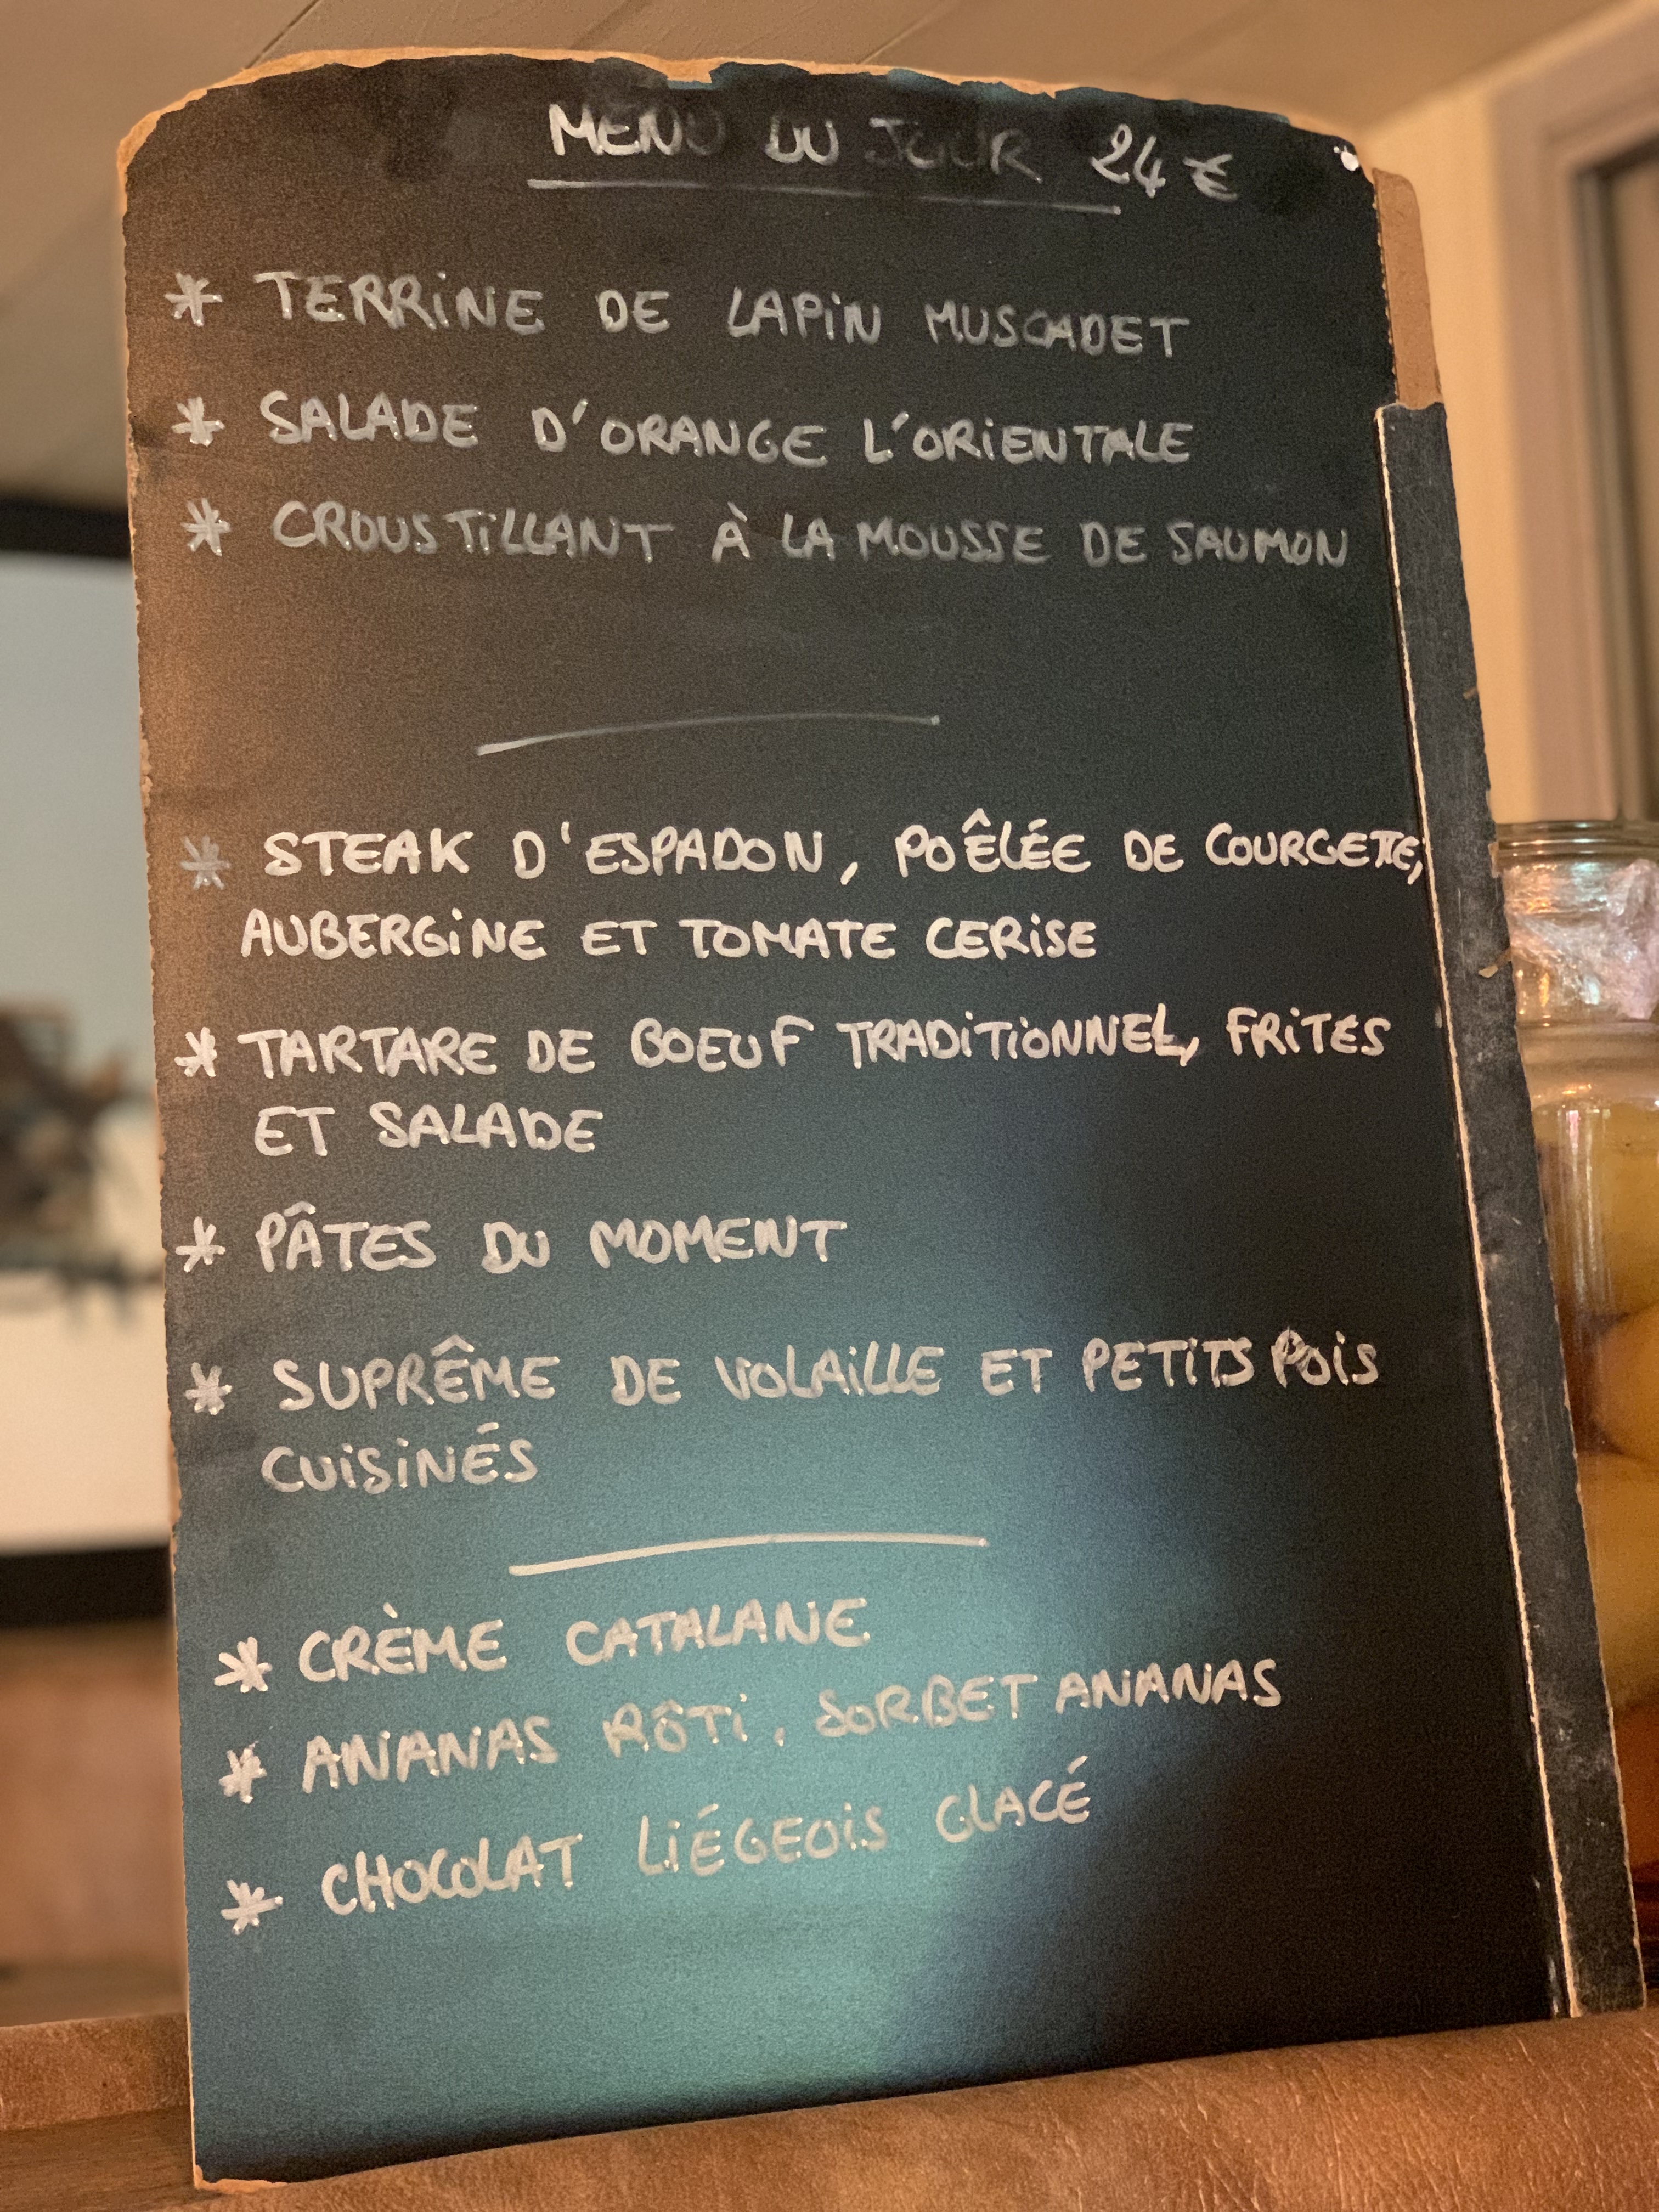 MENU DU JOUR 24 €
* TERRiNE DE LAPiN MUSCADET
* SALADE D'ORANGE L'ORiENTALE
* CROUSTiLLANT À LA MOUSSE DE SAUMON
* STEAK D'ESPADON, POÊLÉE DE COURGETTE,
AUBERGiNE ET TOMATE CERiSE
* TARTARE DE BOEUF TRADiTiONNEL, FRiTES
ET SALADE
* PÂTES DU MOMENT
* SUPRÊME DE VOLAiLLE ET PETiTS POiS
CUiSiNÉS
* CRÈME CATALANE
* ANANAS RÔTi, SORBET ANANAS
* CHOCOLAT LiÉGEOiS GLACÉ